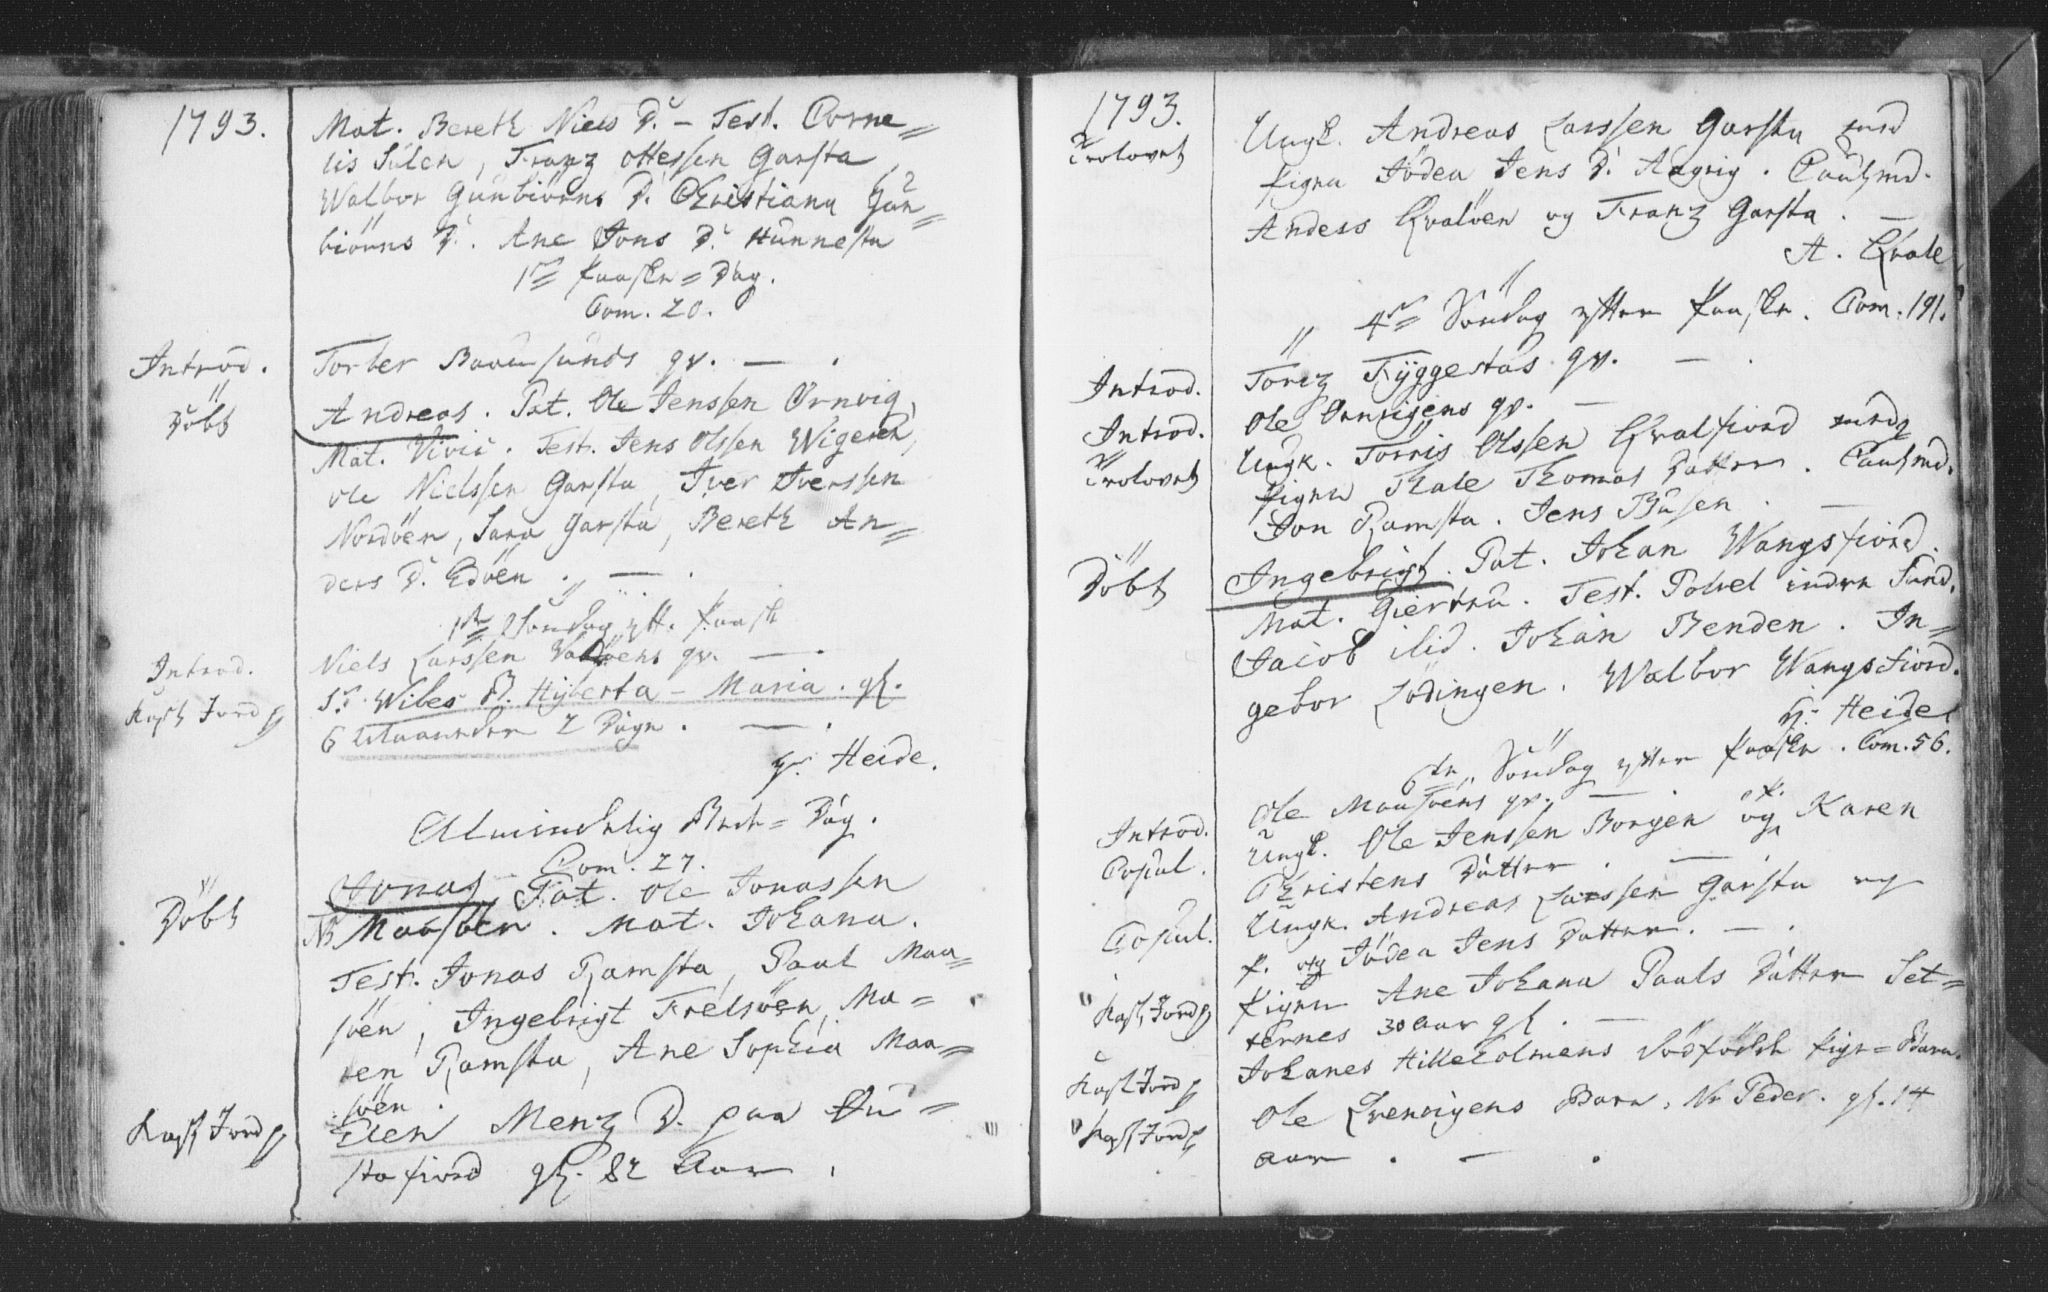 1793.
Mat. Bereth Niels D. – Test. Corne=
lis Sülen, Franz Ottessen Garsta,
Walbor Gunbiörns D. Christiana Gun=
biörns D. Ane Jons D. Hunnesta
1ste Paaske=Dag.
Com. 20.
Introd. Torber Baarsunds qv. — .
Döbt Andreas. Pat. Ole Jenssen Örnvig,
Mat. Vivic. Test. Jens Olssen
Ole Nielssen Garsta, Iver Iverssen
Nordöen, Sara Garsta, Bereth An=
ders D. Edöen . — .
1ste Söndag eft. Paask
Introd. Niels Larssen qv. — .
Kast Jord p Sr. Wibes B. Hyberta – Maria. gl.
6 Maaneder 2 Dage . — .
Hr. Heide.
Almindelig Bede=Dag.
Com. 27.
Döbt Jonas Pat. Ole Jonassen
NB Maasöen. Mat. Johana.
Test. Jonas Ramsta, Paal Maa=
söen, Ingebrigt Frelsöen, Ma=
ren Ramsta, Ane Sophia Maa=
söen.
Kast Jord p Elen Menz D. paa
stafiord gl. 82 Aar .
1793.
Trolovet Ungk. Andreas Larssen Garsta med
Pigen Jödea Jens D. Aagvig. Cautmd.
Anders Qvalöen og Franz Garsta. —
A. Qvale
4de Söndag efter Paaske. Com. 191.
Introd. Töriz Fyggestas qv. — .
Introd. Ole Ornvigens qv. —
Trolovet Ungk. Torris Olssen Qvalfiord med
Pigen Thale Thomas Datter. Cautmd.
Jon Ramsta. Jens Büsen . —
Döbt Ingebrigt. Pat. Johan Wangsfiord.
Mat. Giertru. Test. Povel indre Sund.
Jacob ibid. Johan Benden. In=
gebor Lödingen. Walbor Wangsfiord.
Hr. Heide
6te Söndag efter Paaske. Com. 56.
Introd. Ole Maasöens qv. — .
Copul. Ungk. Ole Jenssen Borgen og P. Karen
Christens Datter . —
Copul. Ungk. Andreas Larssen Garsta og
P. Jödea Jens Datter. — .
Kast Jord p Pigen Ane Johana Pauls Datter Set=
ternes 30 Aar gl . —
Kast Jord p Johanes Hilleholmens Dödfödde Pige=Barn.
Kast Jord p Ole Barn, Nr. Peder. gl. 14
Aar . — .